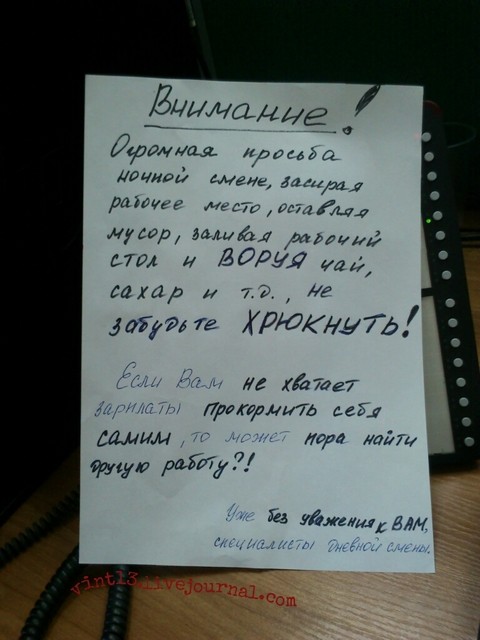 Внимание!
Огромная просьба
ночной смене, засирая
рабочее место, оставляя
мусор, заливая рабочий
стол и ВОРУЯ чай,
сахар и т.д., не
забудьте ХРЮКНУТЬ!
Если Вам не хватает
зарплаты прокормить себя
самим, то может пора найти
другую работу?!
Уже без уважения к ВАМ,
специалисты дневной смены.
vint13.livejournal.com